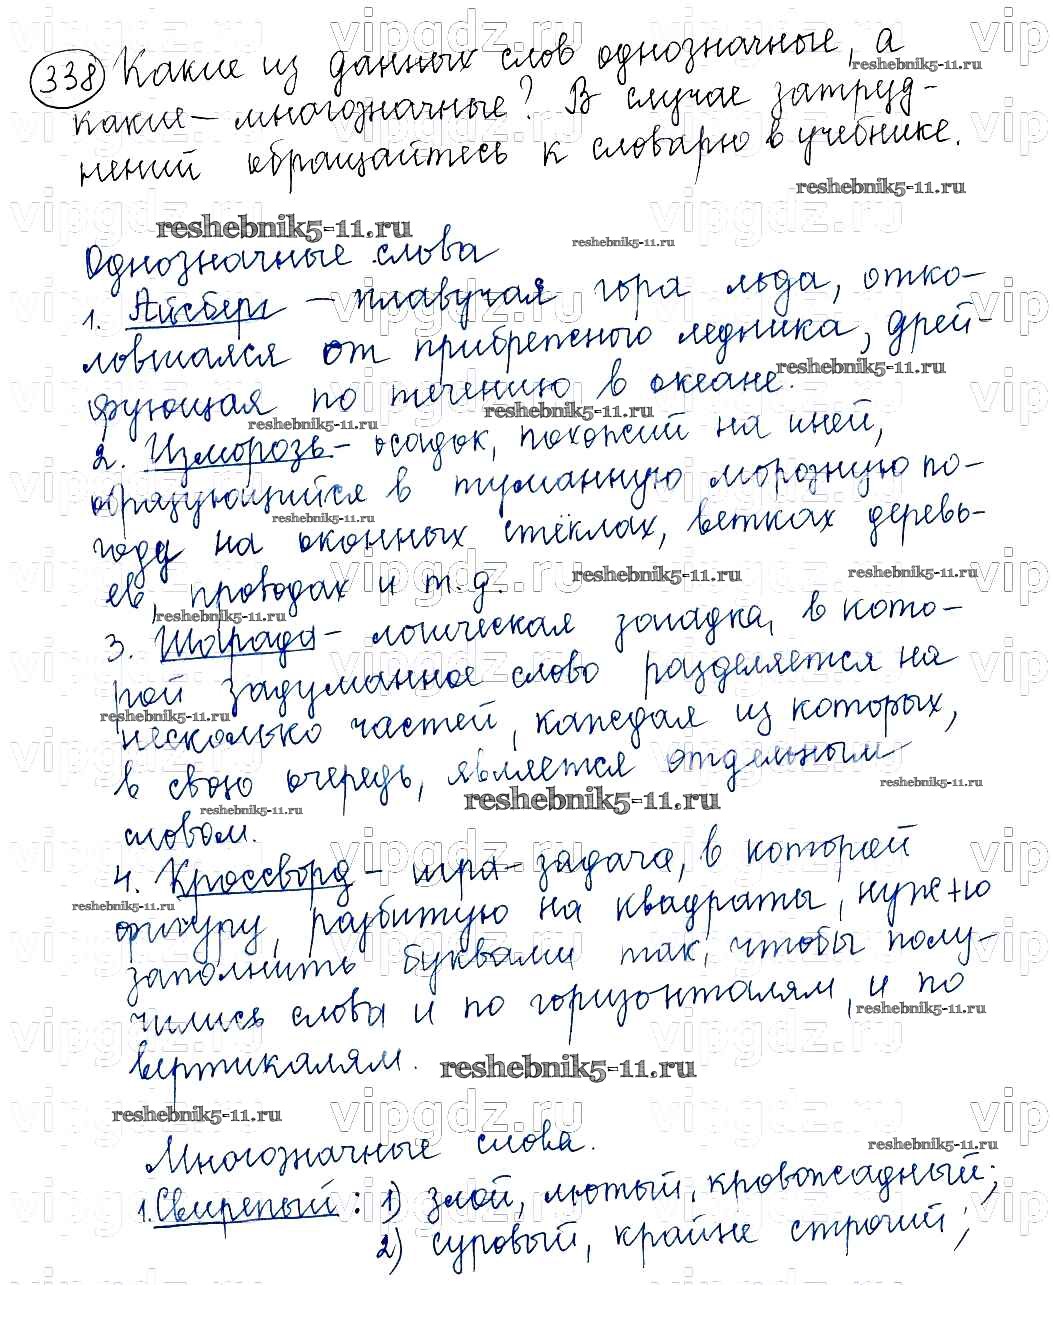 338 Какие из данных слов однозначные, а
какие — многозначные? В случае затруд-
нений обращайтесь к словарю в учебнике.
Однозначные слова
1. Айсберг — плавучая гора льда, отко-
ловшаяся от прибрежного ледника, дрей-
фующая по течению в океане.
2. Изморозь — осадок, похожий на иней,
образующийся в туманную морозную по-
году на оконных стёклах, ветках деревь-
ев, проводах и т. д.
3. Шарада — логическая загадка, в кото-
рой задуманное слово разделяется на
несколько частей, каждая из которых,
в свою очередь, является отдельным
словом.
4. Кроссворд — игра-задача, в которой
фигуру, разбитую на квадраты, нужно
заполнить буквами так, чтобы полу-
чились слова и по горизонталям, и по
вертикалям.
Многозначные слова.
1. Свирепый: 1) злой, лютый, кровожадный;
2) суровый, крайне строгий;